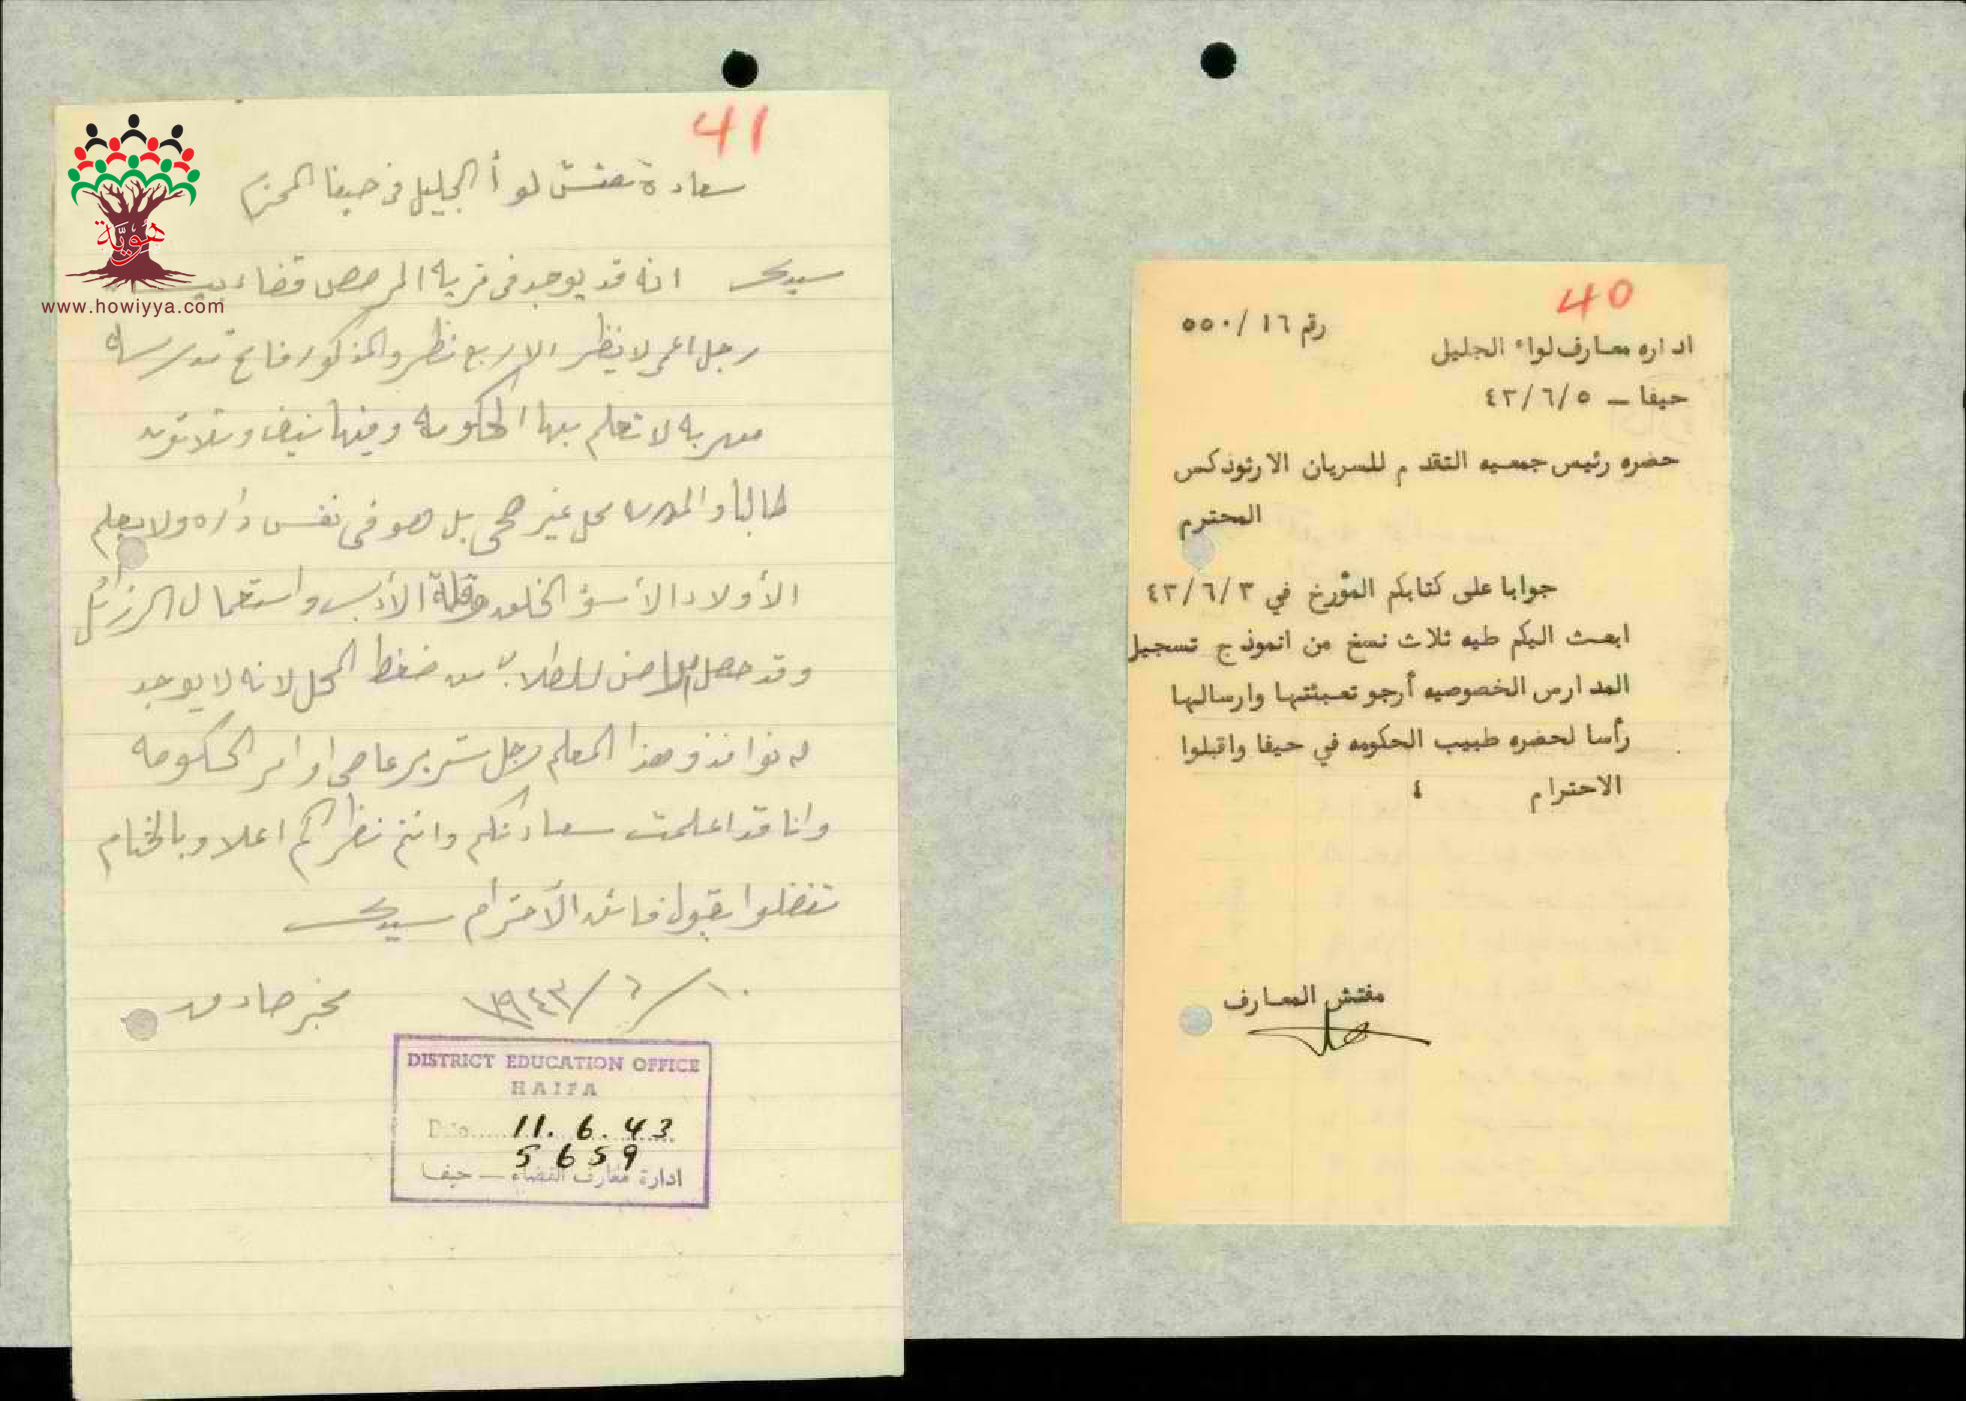 41
سعادة مفتش لوأ الجليل في حيفا المحترم
سيدي انه قد يوجد في قرية المرصص قضاء
رجل اعمى لا ينظر الا ربع نظر والمذكور فاتح مدرسة
سرية لا تعلم بها الحكومه وفيها نيف وثلاثون
طالباً والمدرسه محل غير صحي بل هو في نفس داره ولا يعلم
الأولاد الا سؤ الخلق وقلة الأدب واستعمال الرزائل
وقد حصل امراض للطلاب من ضغط المحل لانه لا يوجد
له نوافذ وهذا المعلم رجل شرير عاصي اوامر الحكومه
وانا قد اعلمت سعادتكم وانتم نظركم اعلا وبالختام
تفضلوا بقبول فائق الأحترام سيدي
١٠/٦/١٩٤٣ مخبر صادق
DISTRICT EDUCATION OFFICE
HAIFA
Date..... 11. 6. 43
5659
ادارة معارف القضاء — حيفا
هويّة
www.howiyya.com
40
رقم ١٦/٥٥٠
اداره معارف لواء الجليل
حيفا — ٤٣/٦/٥
حضره رئيس جمعيه التقدم للسريان الارثوذكس
المحترم
جوابا على كتابكم المؤرخ في ٤٣/٦/٣
ابعث اليكم طيه ثلاث نسخ من انموذج تسجيل
المدارس الخصوصيه أرجو تعبئتها وارسالها
رأسا لحضره طبيب الحكومه في حيفا واقبلوا
الاحترام ٤
مفتش المعارف